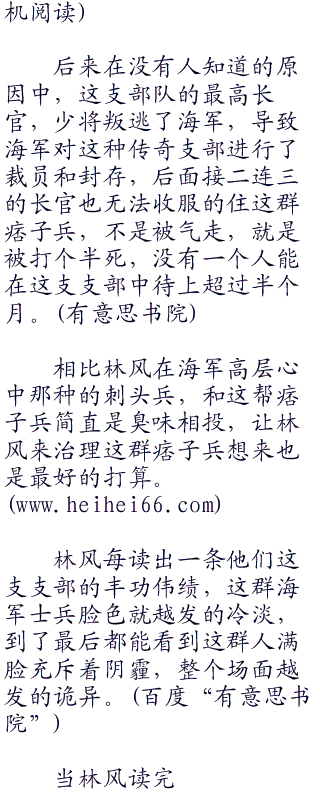 机阅读)
后来在没有人知道的原
因中，这支部队的最高长
官，少将叛逃了海军，导致
海军对这种传奇支部进行了
裁员和封存，后面接二连三
的长官也无法收服的住这群
痞子兵，不是被气走，就是
被打个半死，没有一个人能
在这支支部中待上超过半个
月。(有意思书院)
相比林风在海军高层心
中那种的刺头兵，和这帮痞
子兵简直是臭味相投，让林
风来治理这群痞子兵想来也
是最好的打算。
(www.heihei66.com)
林风每读出一条他们这
支支部的丰功伟绩，这群海
军士兵脸色就越发的冷淡，
到了最后都能看到这群人满
脸充斥着阴霾，整个场面越
发的诡异。(百度“有意思书
院”)
当林风读完